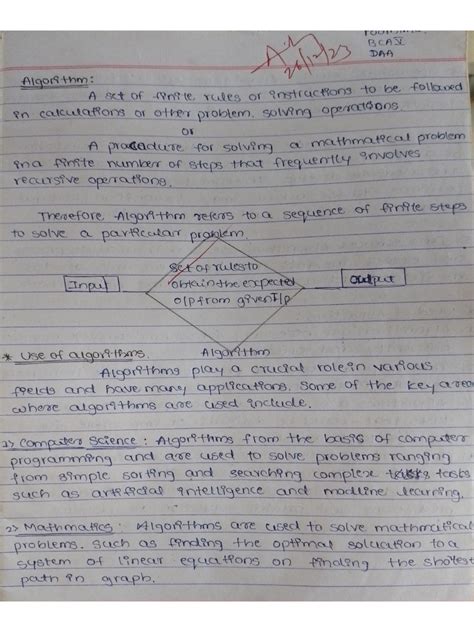 BCA V
DAA
26/12/23
Algorithm:
A set of finite rules or instructions to be followed
in calculations or other problem, solving operations.
or
A procedure for solving a mathmatical problem
in a finite number of steps that frequently involves
recursive operations.
Therefore Algorithm refers to a sequence of finite steps
to solve a particular problem.
Input
Set of rules to
obtain the expected
o/p from given I/p
Output
Algorithm
* Use of algorithms.
Algorithms play a crucial role in various
fields and have many applications. Some of the key area
where algorithms are used include.
1) Computer Science: Algorithms from the basis of computer
programming and are used to solve problems ranging
from simple sorting and searching complex tasks
such as artificial intelligence and modline learning.
2) Mathmatics: Algorithms are used to solve mathmatical
problems. such as finding the optimal soluation to a
system of linear equations on finding the shotest
path in graph.